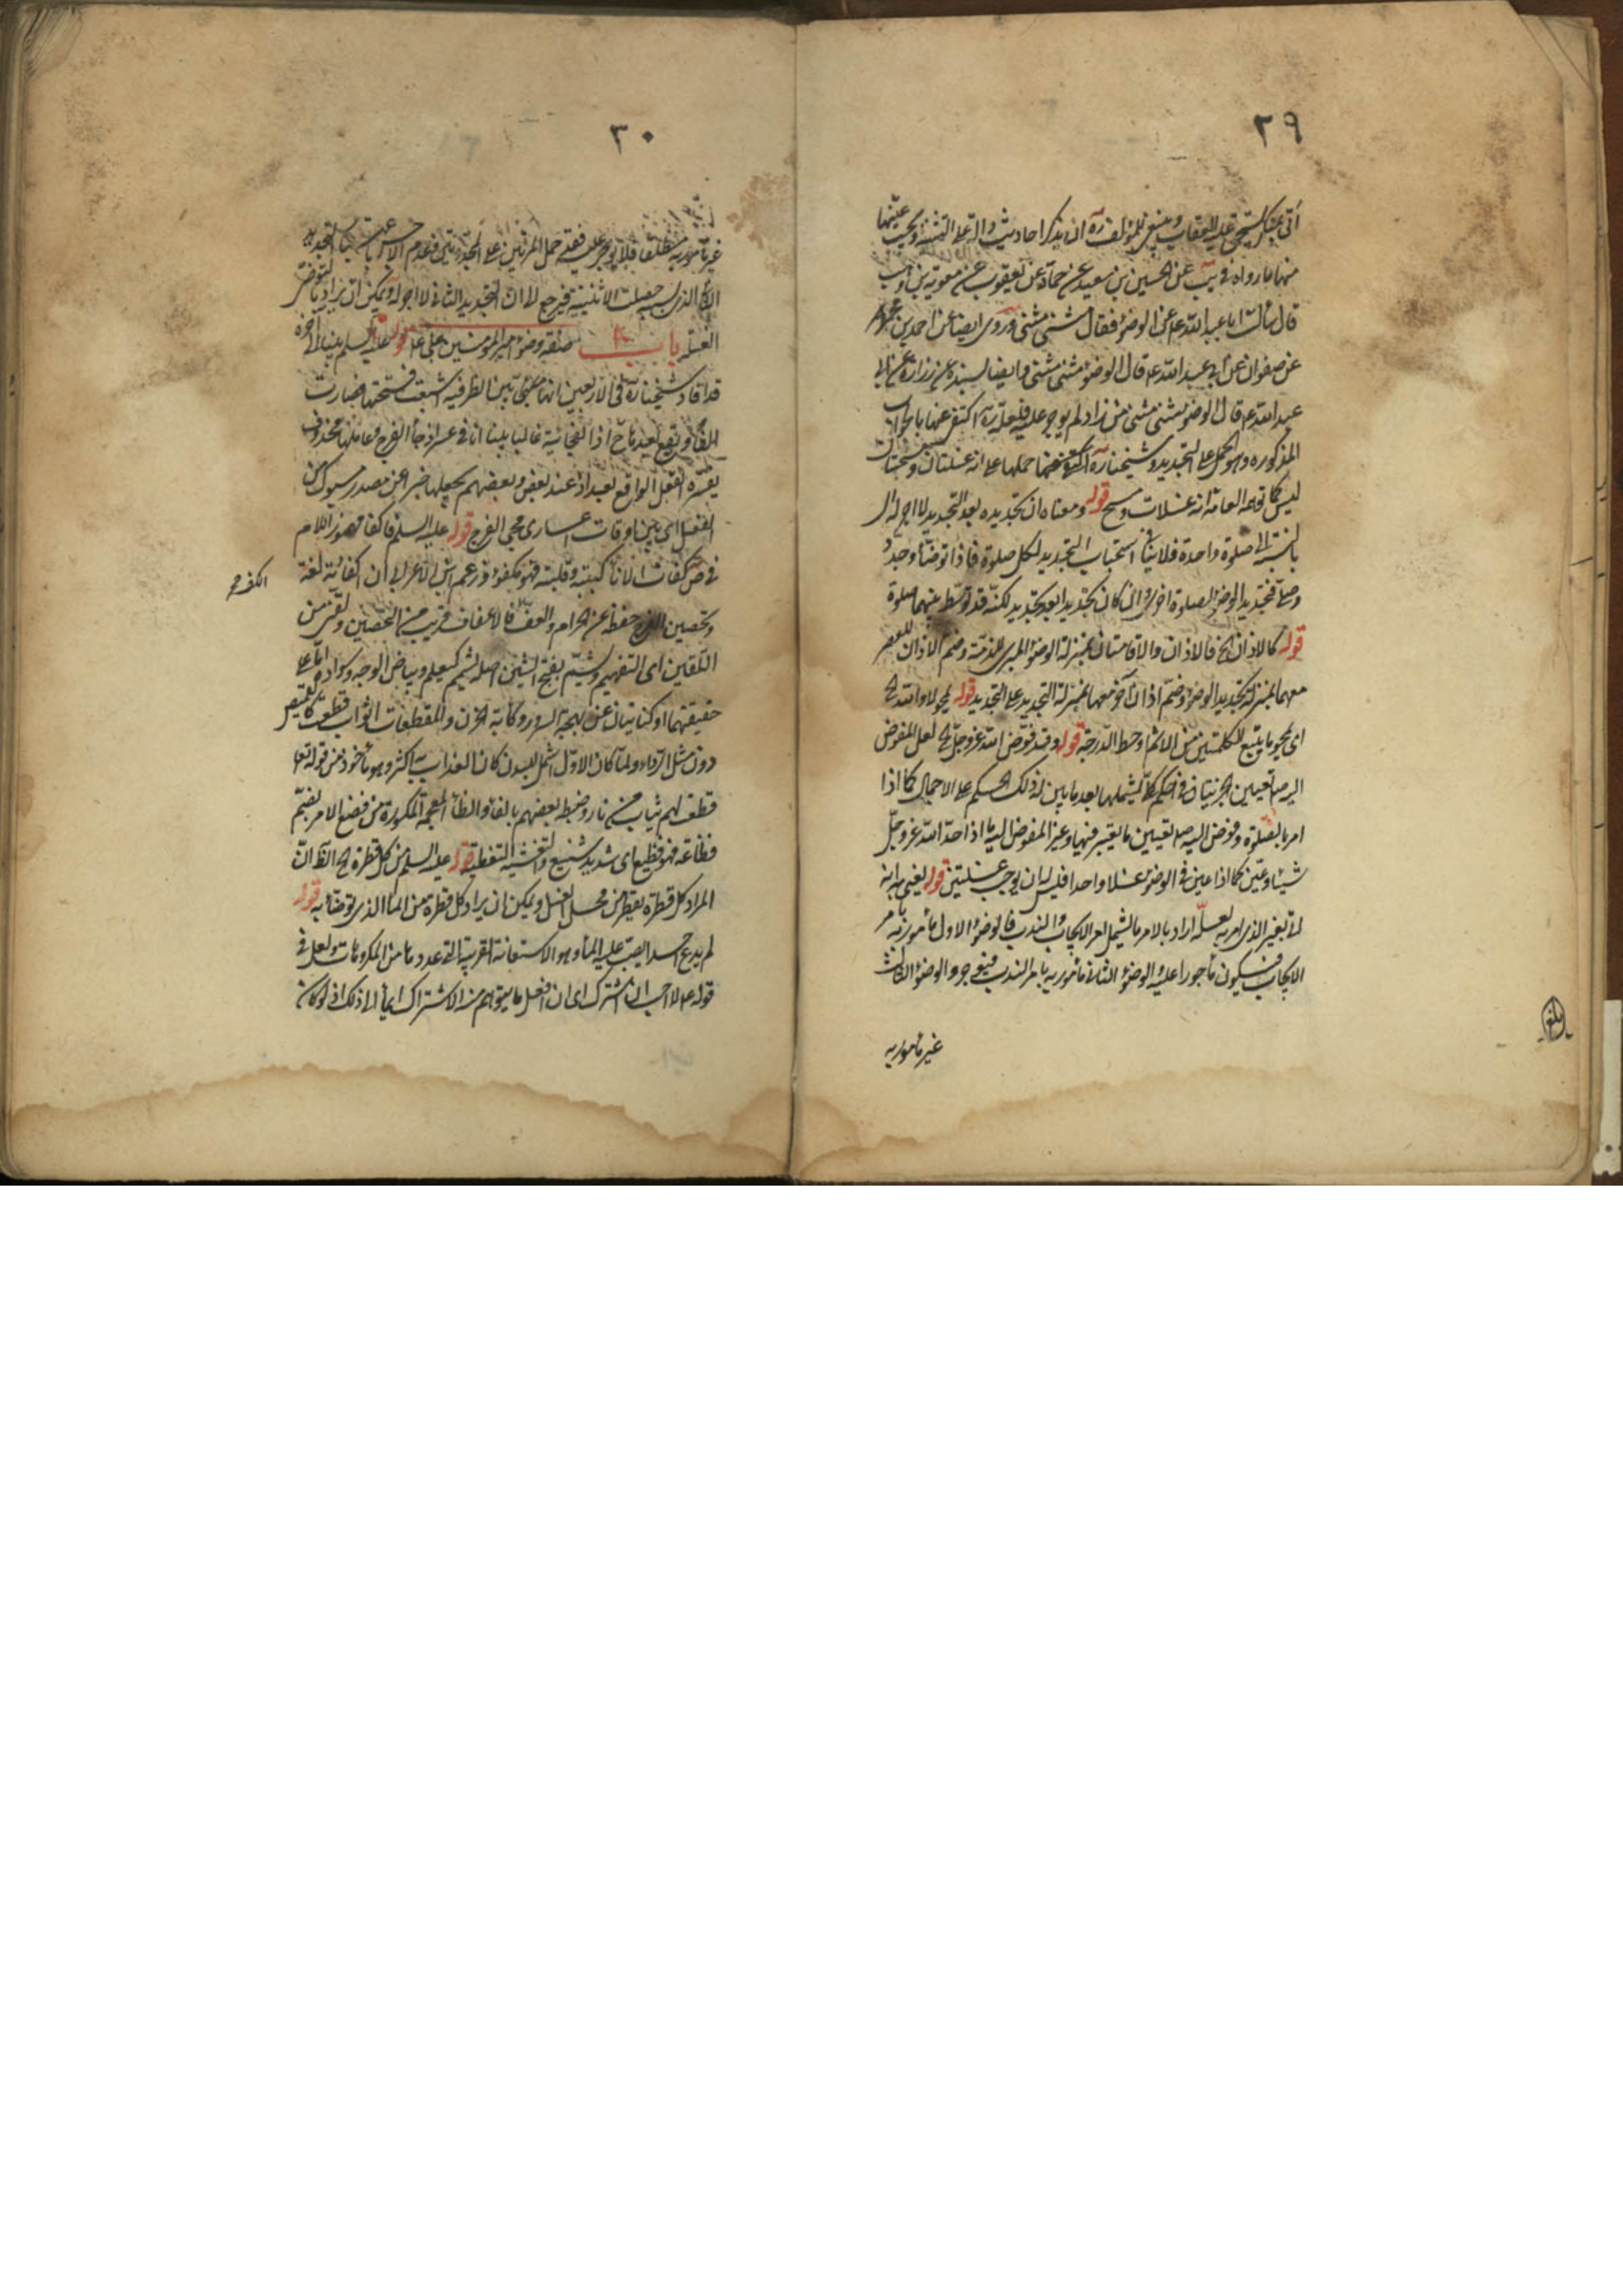 ٢٩
أتى بمنكر يستحق عليه العقاب وينبغي للمؤلف ره ان يذكر احاديث دالة على التثنية ويجيب عنها
منها ما رواه في يب عن الحسين بن سعيد عن حماد عن يعقوب عن معوية بن وهب
قال سألت ابا عبد الله ع عن الوضوء فقال مثنى مثنى وروى ايضا عن احمد بن محمد
عن صفوان عن ابي عبد الله ع قال الوضوء مثنى مثنى وايضا بسنده عن زرارة عن ابي
عبد الله ع قال الوضوء مثنى مثنى من زاد لم يوجر عليه فلعله ره اكتفى عنها بالجواب
المذكورة وهو الحمل على التجديد وشيخنا ره حملها على انه غسلتان ومسحتان
ليس كما توهمه العامة انه غسلات ومسح قوله ومعناه ان تجديده بعد التجديد لا اجر له الى
بالنسبة الى صلوة واحدة فلا ينافي استحباب التجديد لكل صلوة فاذا توضأ وجدد
وصلى فتجديد الوضوء لصلوة اخرى وان كان تجديدا بعد تجديد لكنه قد توسط بينهما صلوة
قوله كالاذان الخ فالاذان والاقامتان بمنزلة الوضوء المبرئ للذمة وضم الاذان للعصر
معهما بمنزلة تجديد الوضوء وضم اذان آخر معهما بمنزلة التجديد على التجديد قوله لا والله الخ
اى يمحو ما يتبع الكلمتين من الاثم وحط الدرجة قوله وقد فوض الله عز وجل الخ لعل المفوض
اليه ص تعيين الجزئيات في حكم كلي يشملها بعد ما بين له ذلك الحكم على الاجمال كما اذا
امر بالصلوة وفوض اليه ص تعيين ما يعتبر فيها وغير المفوض اليه ما اذا حد الله عز وجل
شيئا وعين كما اذا عين في الوضوء غسلا واحدا فليس له ان يوجب غسلتين قوله يعني به انه
اتى بغير الذي امر به لعله اراد بالامر ما يشمل امر الايجاب والندب فالوضوء الاول مأمور به بامر
الايجاب فيكون مأجورا عليه والوضوء الثاني مأمور به بامر الندب فيؤجر والوضوء الثالث
غير مأمور به
بلغ
٣٠
غير مأمور به مطلقا فلا يوجر عليه فعلى حمل المرتين على التجديد
الذي به حصلت الاثنينية فيرجع الى ان التجديد الثاني لا اجر له ويمكن ان يراد بالتوضى
الغسلة باب صفة وضوء امير المؤمنين على ع قوله عليه السلم بينا الى آخره
قد افاد شيخنا ره في الاربعين انها هي بين الظرفية اشبعت فتحتها فصارت
الفا وتقع بعدها ح اذا الفجائية غالبا بينا انا في عسر اذ جاء الفرج وعاملها محذوف
يفسره الفعل الواقع بعد اذ عند بعض وبعضهم يجعلها خبرا عن مصدر مسبوك من
الفعل اى بين اوقات اعسارى مجئ الفرج قوله عليه السلم فاكفا مهموز اللام
في ص كفأت الاناء كببته وقلبته فهو مكفوء وزعم ابن الاعرابي ان اكفأته لغة
وتحصين الفرج حفظه عن الحرام والعف فالاعفاف قريب من التحصين ولقن من
التلقين اى التفهيم ويشم بفتح الشين اصله يشمم كيعلم وبياض الوجه وسواده اما على
حقيقتهما او كنايتان عن بهجة السرور وكآبة الحزن والمقطعات اثواب قطعت كالقميص
دون مثل الرداء ولما كان الاول اشمل للبدن كان العذاب به اكثر وهو مأخوذ من قوله تعا
قطعت لهم ثياب من نار وضبط بعضهم بالفاء والظاء المعجمة المكسورة من فظع الامر بضم
فظاعة فهو فظيع اى شديد شنيع والتغشية التغطية قوله عليه السلم من كل قطرة الخ الظ ان
المراد كل قطرة يقطر من محل الغسل ويمكن ان يراد كل قطرة من الماء الذى توضأ به قوله
لم يدع احدا يصب عليه الماء وهو الاستعانة القريبة التي عدوها من المكروهات ولعل في
قوله ع لا احب ان اشرك اى ان افعل ما يتوهم منه الاشتراك ايماء الى ذلك اذ لو كان